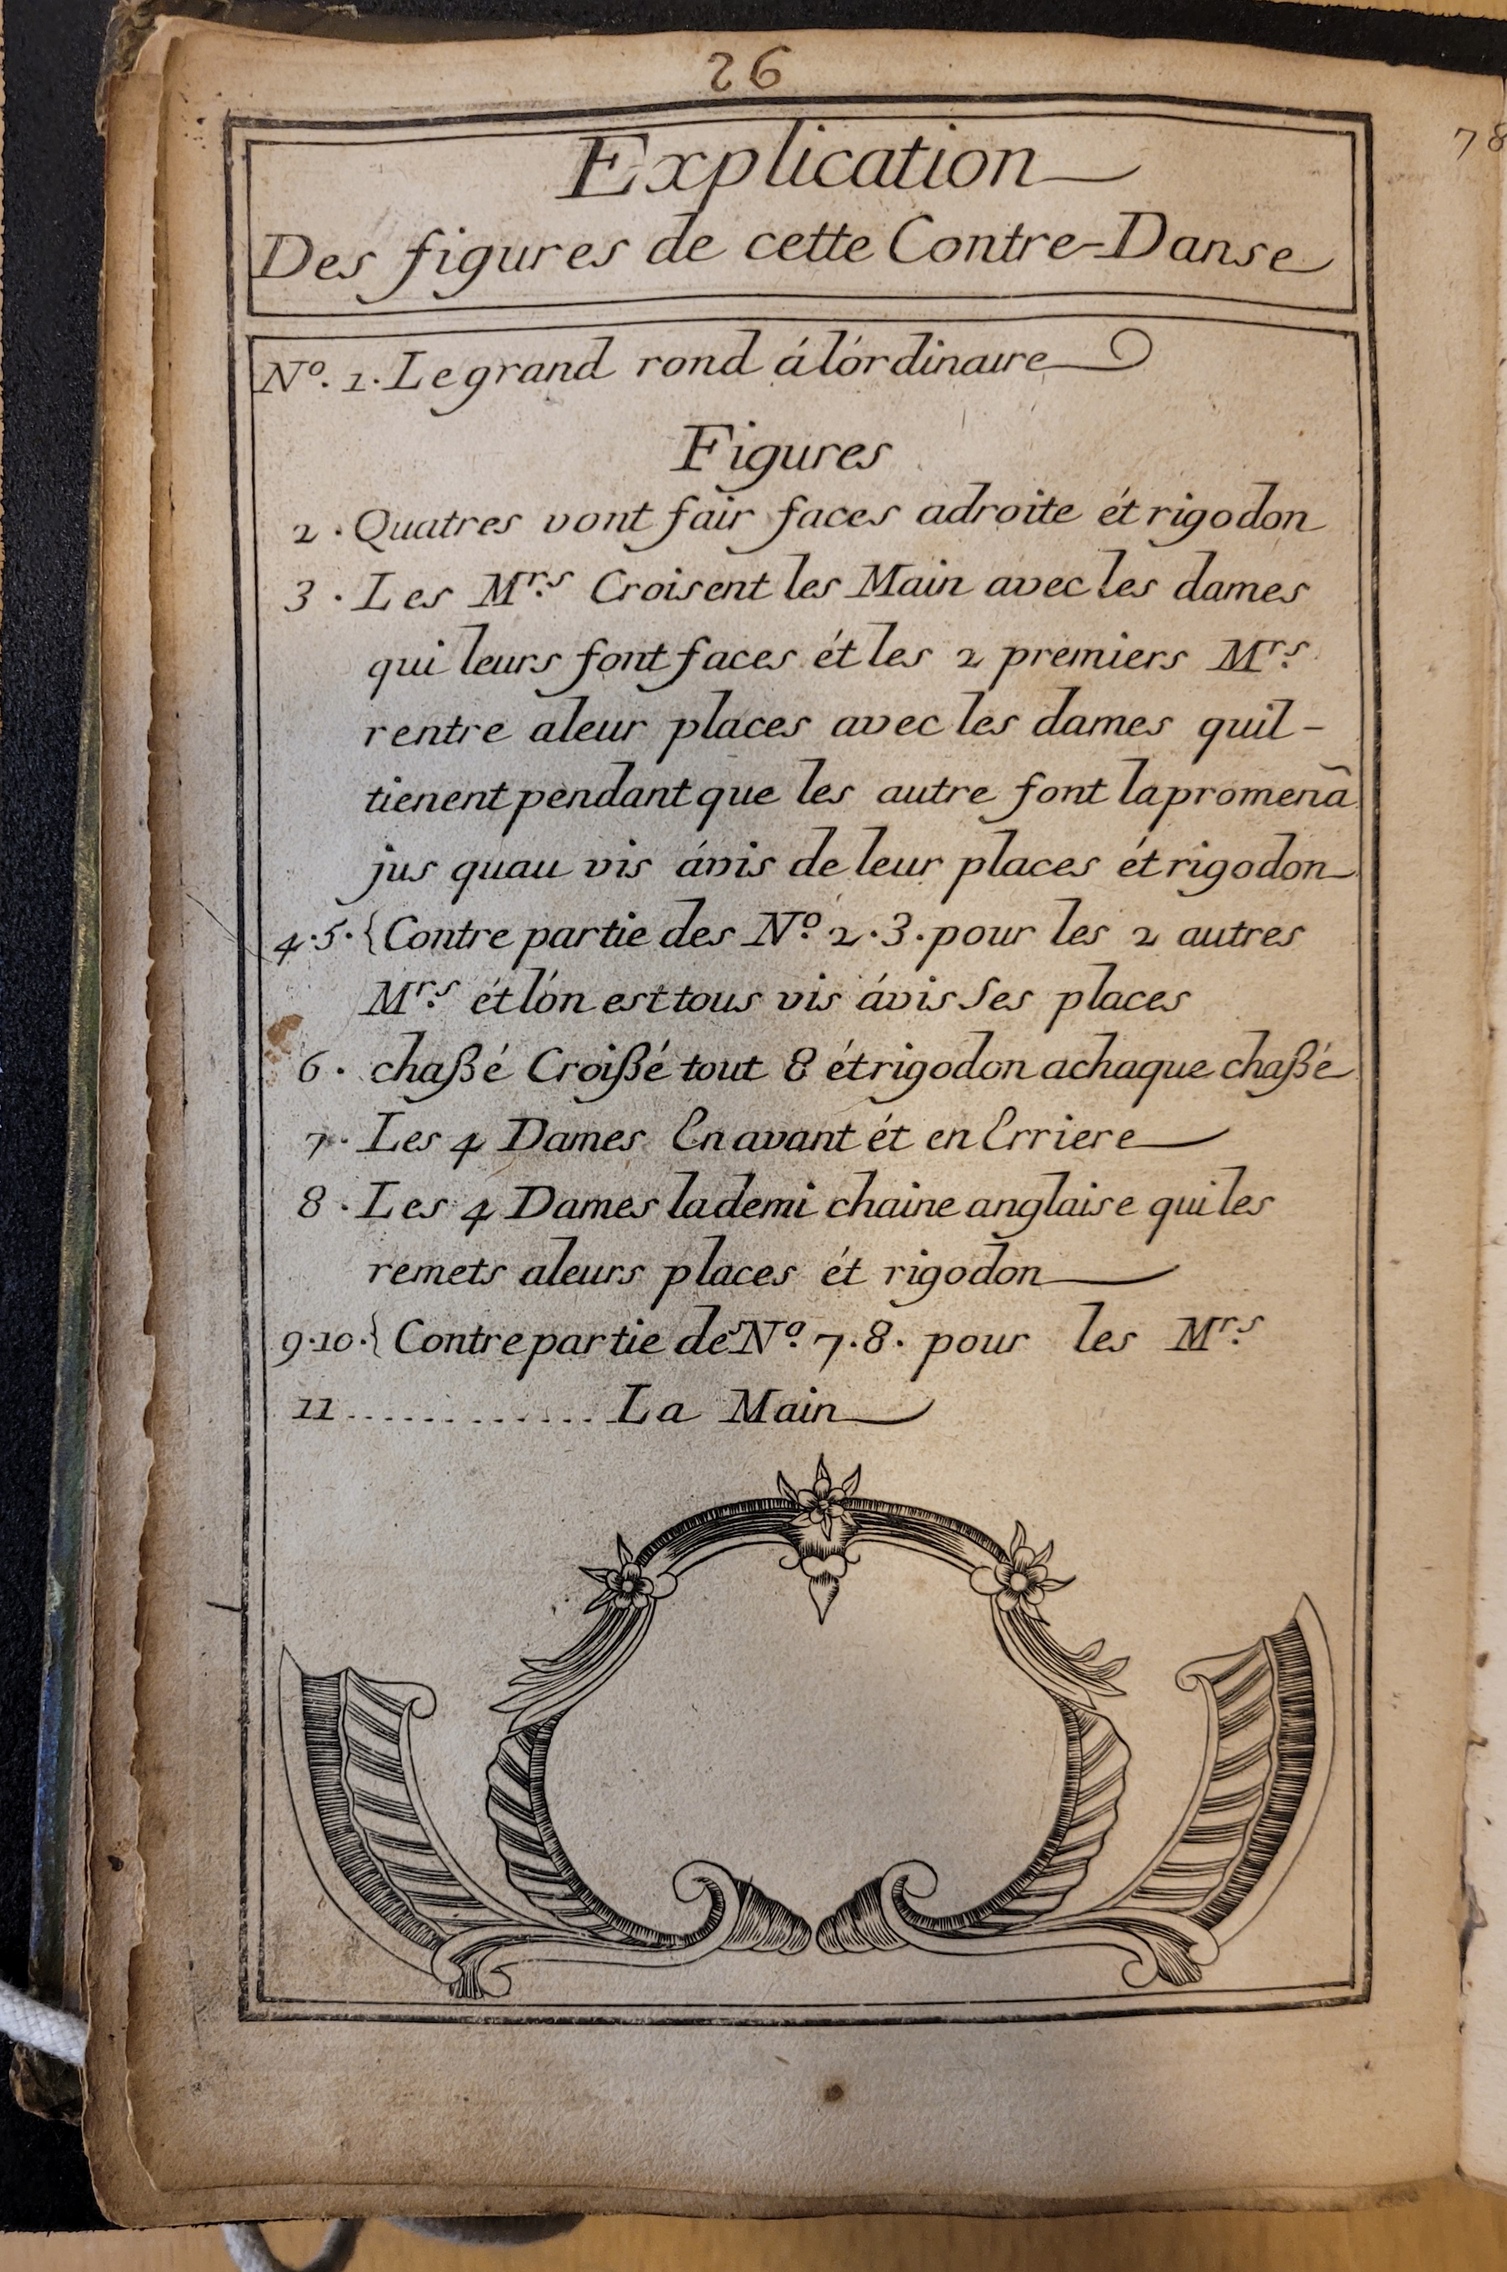 26
Explication
Des figures de cette Contre-Danse
Nº. 1. Le grand rond á lórdinaire
Figures
2. Quatres vont fair faces adroite ét rigodon
3. Les Mrs. Croisent les Main avec les dames
qui leurs font faces ét les 2 premiers Mrs.
rentre aleur places avec les dames quil-
tienent pendant que les autre font la promenã
jus quau vis ávis de leur places ét rigodon
4.5.{Contre partie des Nº. 2.3. pour les 2 autres
Mrs. ét lón est tous vis ávis Ses places
6. chaßé Croißé tout 8 ét rigodon achaque chaßé
7. Les 4 Dames En avant ét en Erriere
8. Les 4 Dames lademi chaine anglaise qui les
remets aleurs places ét rigodon
9.10.{ Contre partie des Nº. 7.8. pour les Mrs.
11............. La Main
78